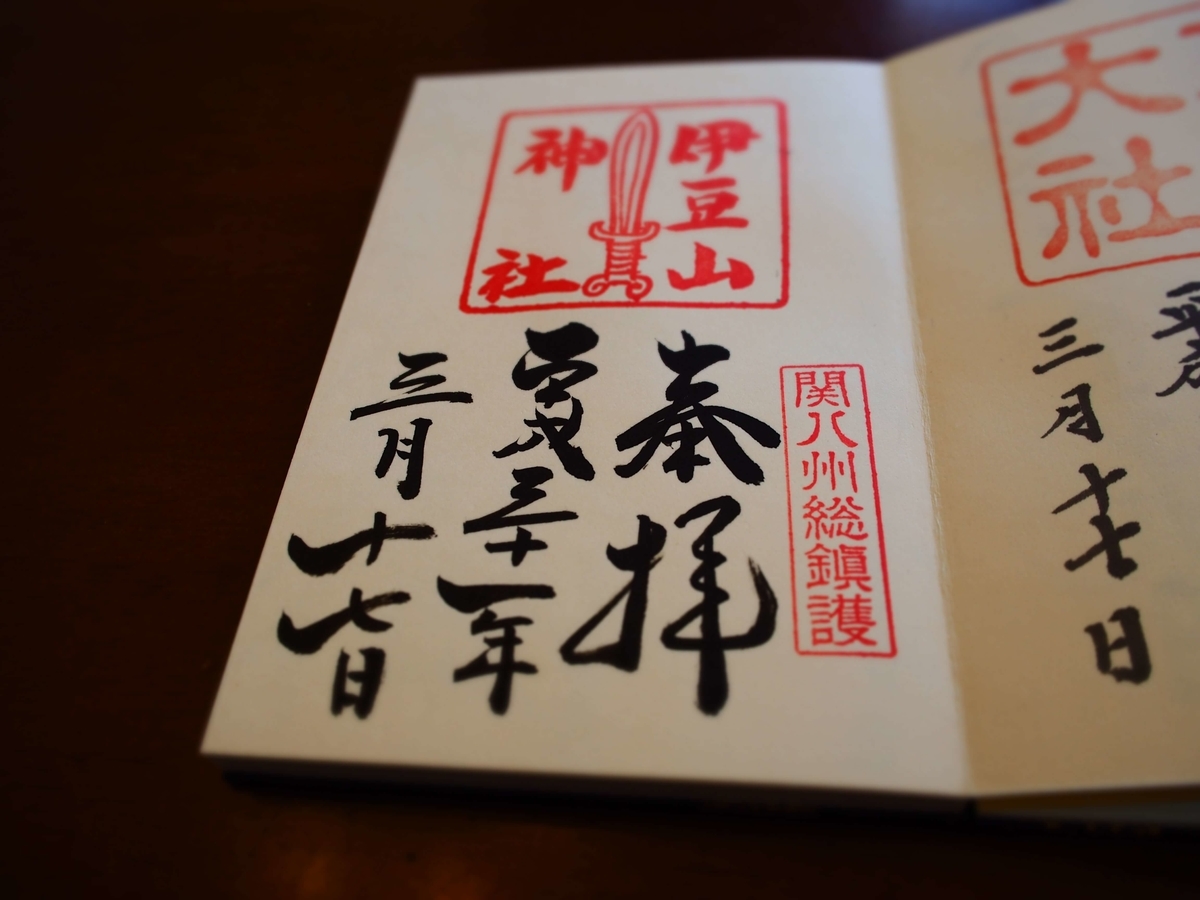 大社
三月十七日
伊豆山
神社
関八州総鎭護
奉拝
平成三十一年
三月十七日